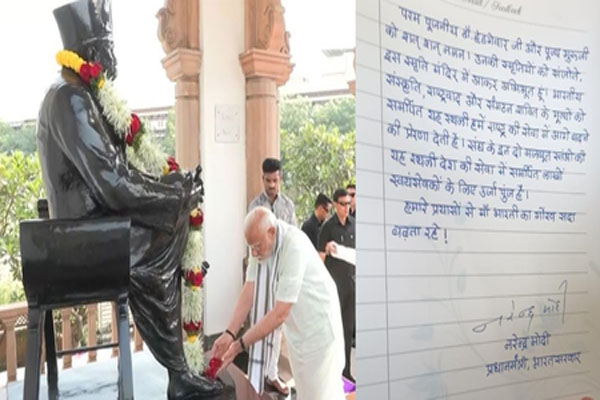 / Feedback
परम पूजनीय डॉ हेडगेवार जी और पूज्य गुरुजी
को शत् शत् नमन। उनकी स्मृतियों को संजोते,
इस स्मृति मंदिर में आकर अभिभूत हूं। भारतीय
संस्कृति, राष्ट्रवाद और संगठन शक्ति के मूल्यों को
समर्पित यह स्थली हमें राष्ट्र की सेवा में आगे बढ़ने
की प्रेरणा देती है। संघ के इन दो मजबूत स्तंभों की
यह स्थली देश की सेवा में समर्पित लाखों
स्वयंसेवकों के लिए ऊर्जा पुंज है।
हमारे प्रयासों से माँ भारती का गौरव सदा
बढ़ता रहे!
नरेन्द्र मोदी
नरेन्द्र मोदी
प्रधानमंत्री, भारत सरकार